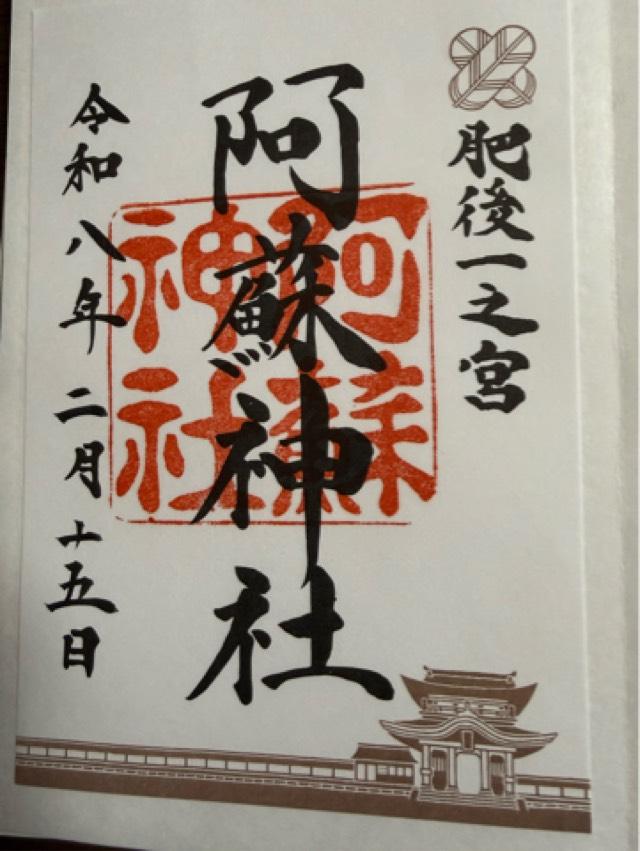 肥後一之宮
阿蘇神社
阿蘇神社
令和八年二月十五日